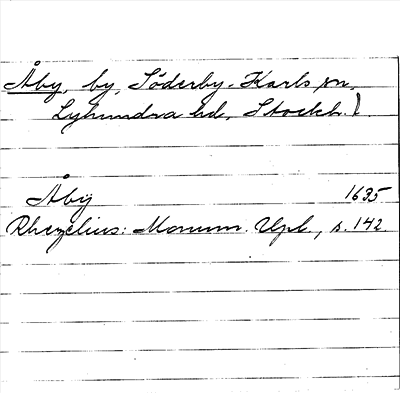 Åby, by, Söderby-Karls sn,
Lyhundra hd, Stockh. l.
Åbÿ 1635
Rhezelius: Monum. Upl., s. 142.